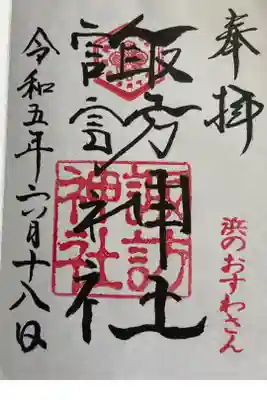 奉拝
浜のおすわさん
諏訪神社
諏訪
神社
令和五年六月十八日